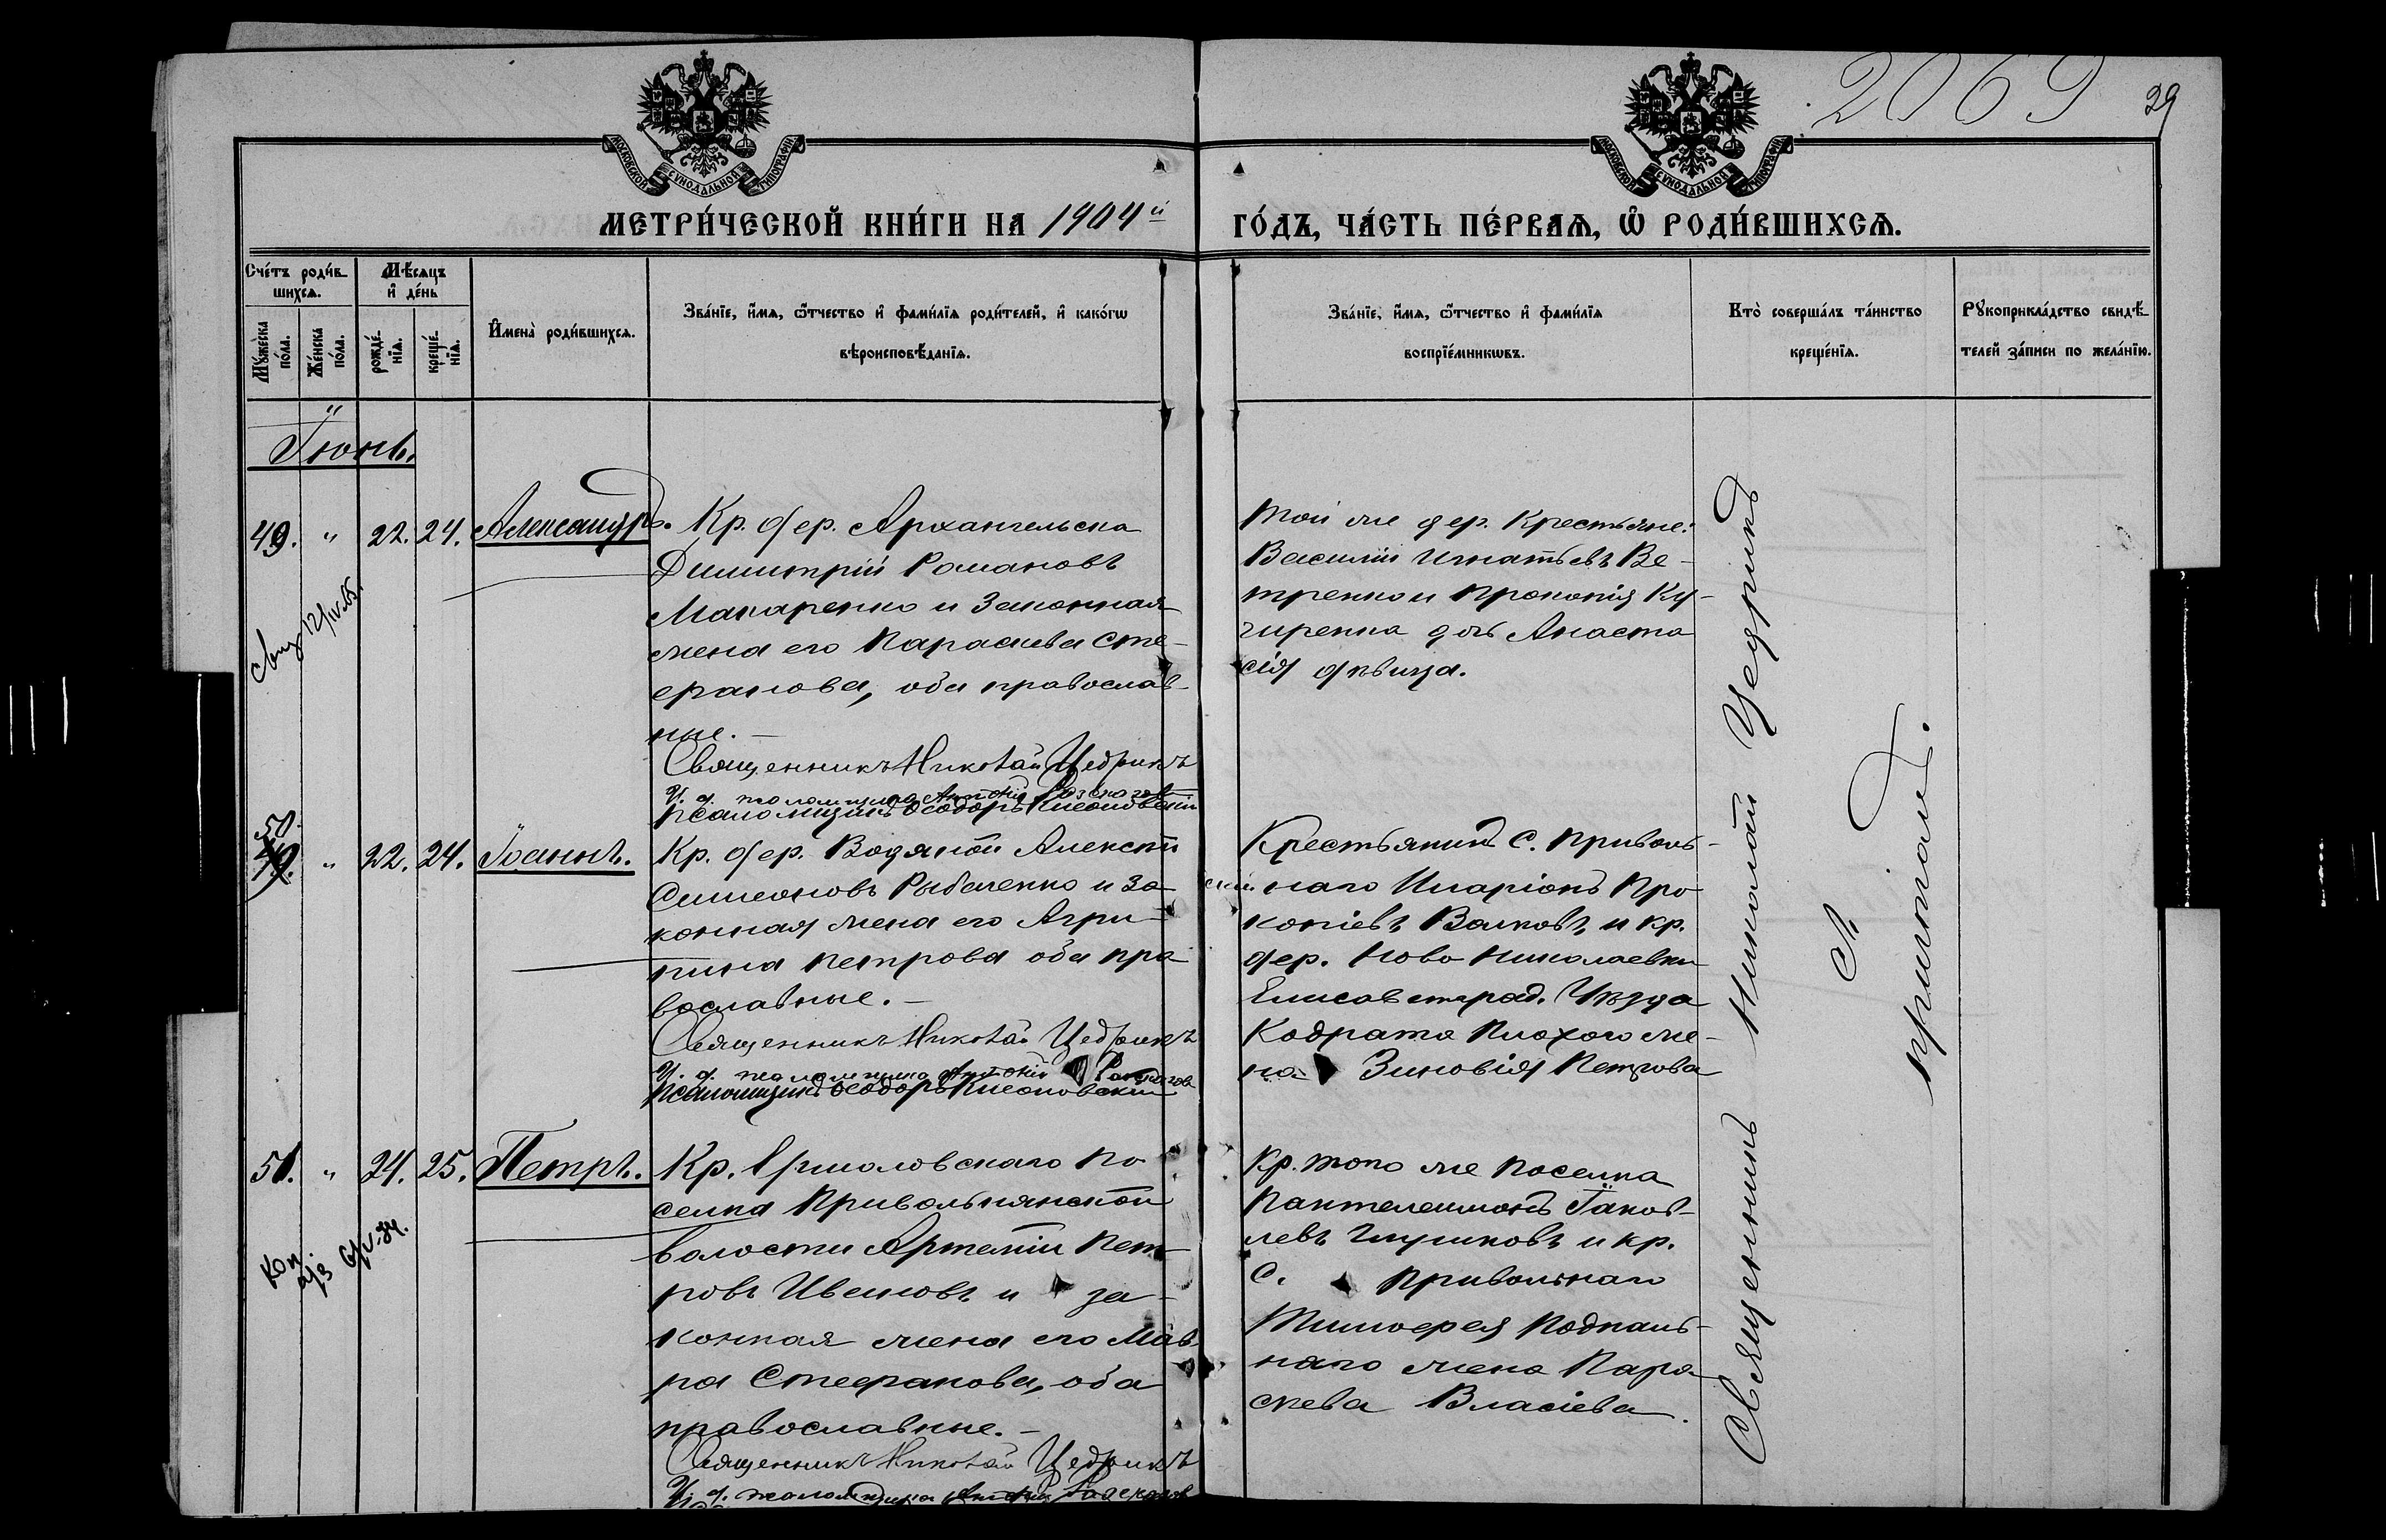 2069
29
МОСКОВСКОЙ СУНОДАЛЬНОЙ ТИПОГРАФІИ
МОСКОВСКОЙ СУНОДАЛЬНОЙ ТИПОГРАФІИ
МЕТРИ́ЧЕСКОЙ КНИ́ГИ НА 1904й
ГО́ДЪ, ЧА́СТЬ ПЕ́РВАѦ, Ѡ҆ РОДИ́ВШИХСѦ.
Сче́тъ роди́в-
шихсѧ.
Мѣ́сѧцъ
и҆ де́нь
Мꙋ́жеска по́ла.
Же́нска по́ла.
рожде́-нїѧ.
креще́-нїѧ.
И҆мена̀ роди́вшихсѧ.
Зва́нїе, и҆́мѧ, ѻ҆́тчество и҆ фами́лїѧ роди́телей, и҆ како́гѡ
вѣроисповѣ́данїѧ.
Зва́нїе, и҆́мѧ, ѻ҆́тчество и҆ фами́лїѧ
воспрїе́мникѡвъ.
Кто̀ соверша́лъ та́инство
креще́нїѧ.
Рꙋкоприкла́дство свидѣ́-
телей за́писи по жела́нїю.
Іюнь.
49. " 22. 24. Александръ.
Кр. дер. Архангельска
Димитрій Романовъ
Макаренко и законная
жена его Параскева Сте-
фанова, оба православ-
ные.
Священникъ Николай Цедрикъ
И. д. псаломщика Антоній
Псаломщикъ Ѳеодоръ
той же дер. Крестьяне:
Василій Игнатьевъ Ве-
тренко и Прокопія Ку-
чиренка дочь Анаста
сія дѣвица.
50.
49. " 22. 24. Іоаннъ.
Кр. дер. Водяной Алексѣй
Симеоновъ Рыбаченко и за-
конная жена его Агри-
пина Петрова оба пра
вославные.
Священникъ Николай Цедрикъ
И. д. псаломщика Антоній
Псаломщикъ Ѳеодоръ
Крестьянинъ с. Приволь-
наго Иларіонъ Про
копіевъ Волковъ и кр.
дер. Ново Николаевки
Елисаветград. Уѣзда
Кодрата Плохого же-
на Зиновія Петрова
51. " 24. 25. Петръ.
Кр. Ермоловскаго по
селка Привольнянской
волости Артемій Пет-
ровъ Ивановъ и за-
конная жена его Мав
ра Стефанова, оба
православные.
Священникъ Николай Цедрикъ
И. д. псаломщика Антоній
Кр. того же поселка
Пантелеимонъ Іаков-
левъ и кр.
с. Привольнаго
Тимоѳея
наго жена Пара
скева Власіева.
Священникъ Николай Цедрикъ
с
причтомъ.